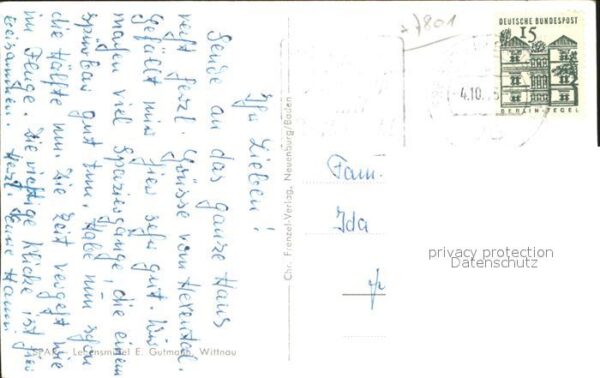 Ihr Lieben!
Sende an das ganze Haus
recht herzl. Grüsse vom Hexental.
Gefällt mir hier sehr gut. Wir
machen viel Spaziergänge, die einem
spürbar gut tun. Habe nun schon
die Hälfte um. Die Zeit vergeht wie
im Fluge. Die richtige Clicke ist hier
beisammen. Herzl. Eure Hanni
7801
DEUTSCHE BUNDESPOST
15
BERLIN-TEGEL
4.10.
Fam.
Ida
privacy protection
Datenschutz
Chr. Frenzel-Verlag, Neuenburg/Baden
SPAR - Lebensmittel E. Gutmann, Wittnau